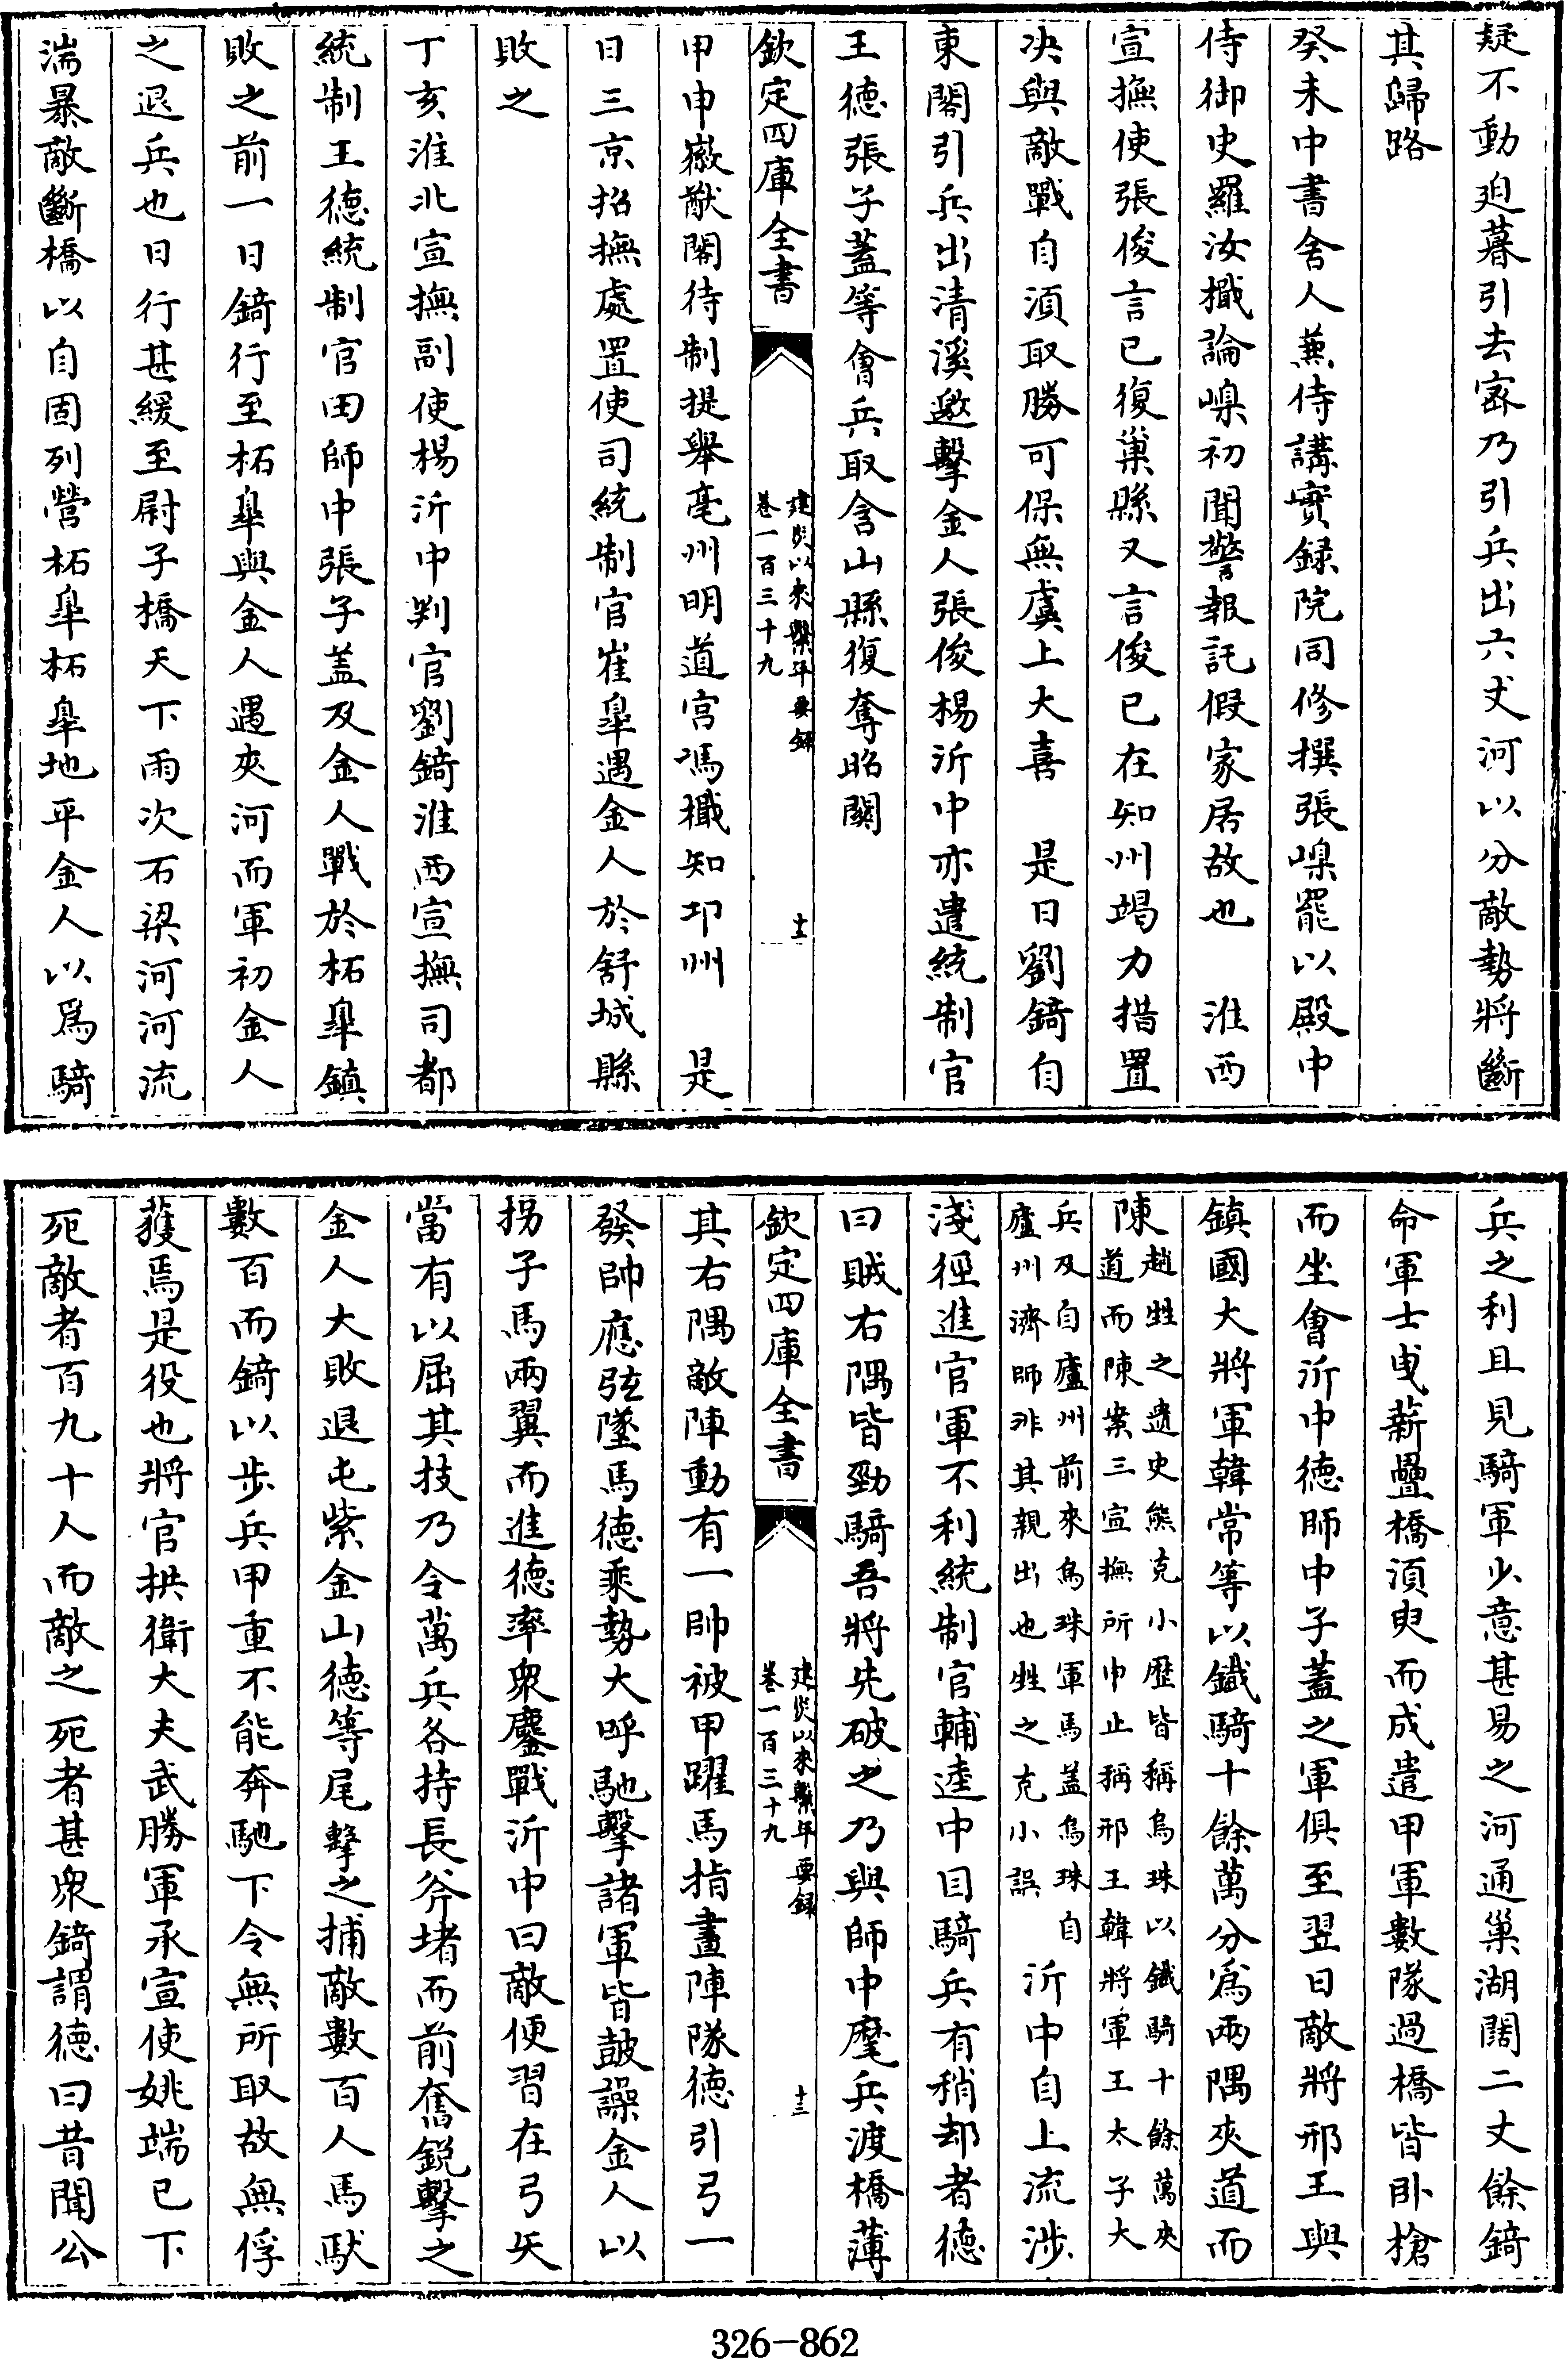 疑不動廹暮引去密乃引兵出六丈河以分敵勢將斷
其歸路
癸未中書舍人兼侍講實録院同修撰張嵲罷以殿中
侍御史羅汝檝論嵲初聞警報託假家居故也　淮西
宣撫使張俊言已復巢縣又言俊已在知州竭力措置
决與敵戰自湏取勝可保無虞上大喜　是日劉錡自
東關引兵出清溪邀擊金人張俊楊沂中亦遣統制官
王德張子蓋等會兵取含山縣復奪昭關
欽定四庫全書　建炎以來繫年要録　卷一百三十九　十二
甲申徽猷閣待制提舉亳州明道宫馮檝知邛州　是
日三京招撫處置使司統制官崔臯遇金人於舒城縣
敗之
丁亥淮北宣撫副使楊沂中判官劉錡淮西宣撫司都
統制王德統制官田師中張子盖及金人戰於柘臯鎮
敗之前一日錡行至柘臯與金人遇夾河而軍初金人
之退兵也日行甚緩至尉子橋天下雨次石梁河河流
湍暴敵斷橋以自固列營柘臯柘臯地平金人以爲騎
兵之利且見騎軍少意甚易之河通巢湖闊二丈餘錡
命軍士曳薪疊橋湏臾而成遣甲軍數隊過橋皆卧槍
而坐會沂中德師中子蓋之軍俱至翌日敵將邢王與
鎮國大將軍韓常等以鐵騎十餘萬分爲兩隅夾道而
陳趙甡之遺史熊克小歴皆稱烏珠以鐵騎十餘萬夾
道而陳案三宣撫所申止稱邢王韓將軍王太子大
兵及自廬州前來烏珠軍馬盖烏珠自
廬州濟師非其親出也甡之克小誤　沂中自上流涉
淺徑進官軍不利統制官輔逵中目騎兵有稍却者德
曰賊右隅皆勁騎吾將先破之乃與師中麾兵渡橋薄
欽定四庫全書　建炎以來繫年要録　卷一百三十九　十三
其右隅敵陣動有一帥被甲躍馬指畫陣隊德引弓一
發帥應弦墜馬德乘勢大呼馳擊諸軍皆鼓譟金人以
拐子馬兩翼而進德率衆鏖戰沂中曰敵便習在弓矢
當有以屈其技乃令萬兵各持長斧堵而前奮鋭擊之
金人大敗退屯紫金山德等尾擊之捕敵數百人馬馱
數百而錡以步兵甲重不能奔馳下令無所取故無俘
獲焉是役也將官拱衛大夫武勝軍承宣使姚端已下
死敵者百九十人而敵之死者甚衆錡謂德曰昔聞公
326-862